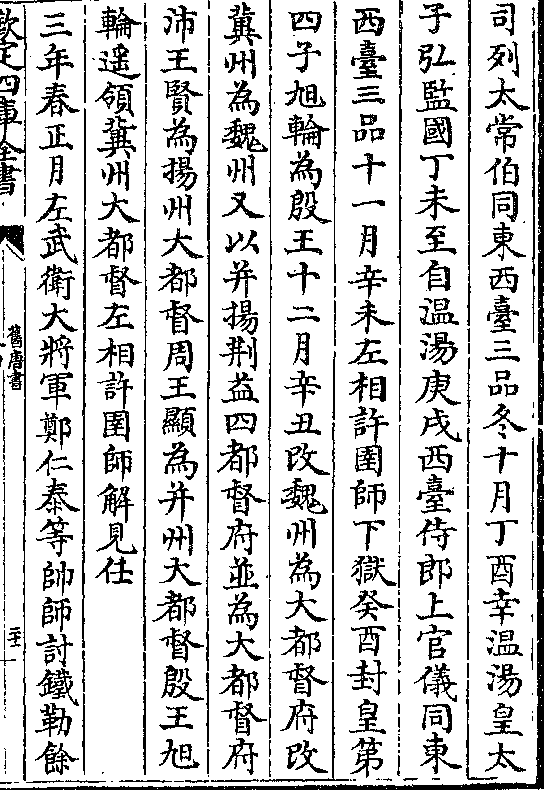 司列太常伯同東西臺三品冬十月丁酉幸温湯皇太
子弘監國丁未至自温湯庚戌西臺侍郎上官儀同東
西臺三品十一月辛未左相許圉師下獄癸酉封皇第
四子旭輪為殷王十二月辛丑改魏州為大都督府改
冀州為魏州又以并揚荆益四都督府並為大都督府
沛王賢為揚州大都督周王顯為并州大都督殷王旭
輪遥領冀州大都督左相許圉師解見任
三年春正月左武衛大將軍鄭仁泰等帥師討鐵勒餘
欽定四庫全書
舊唐書